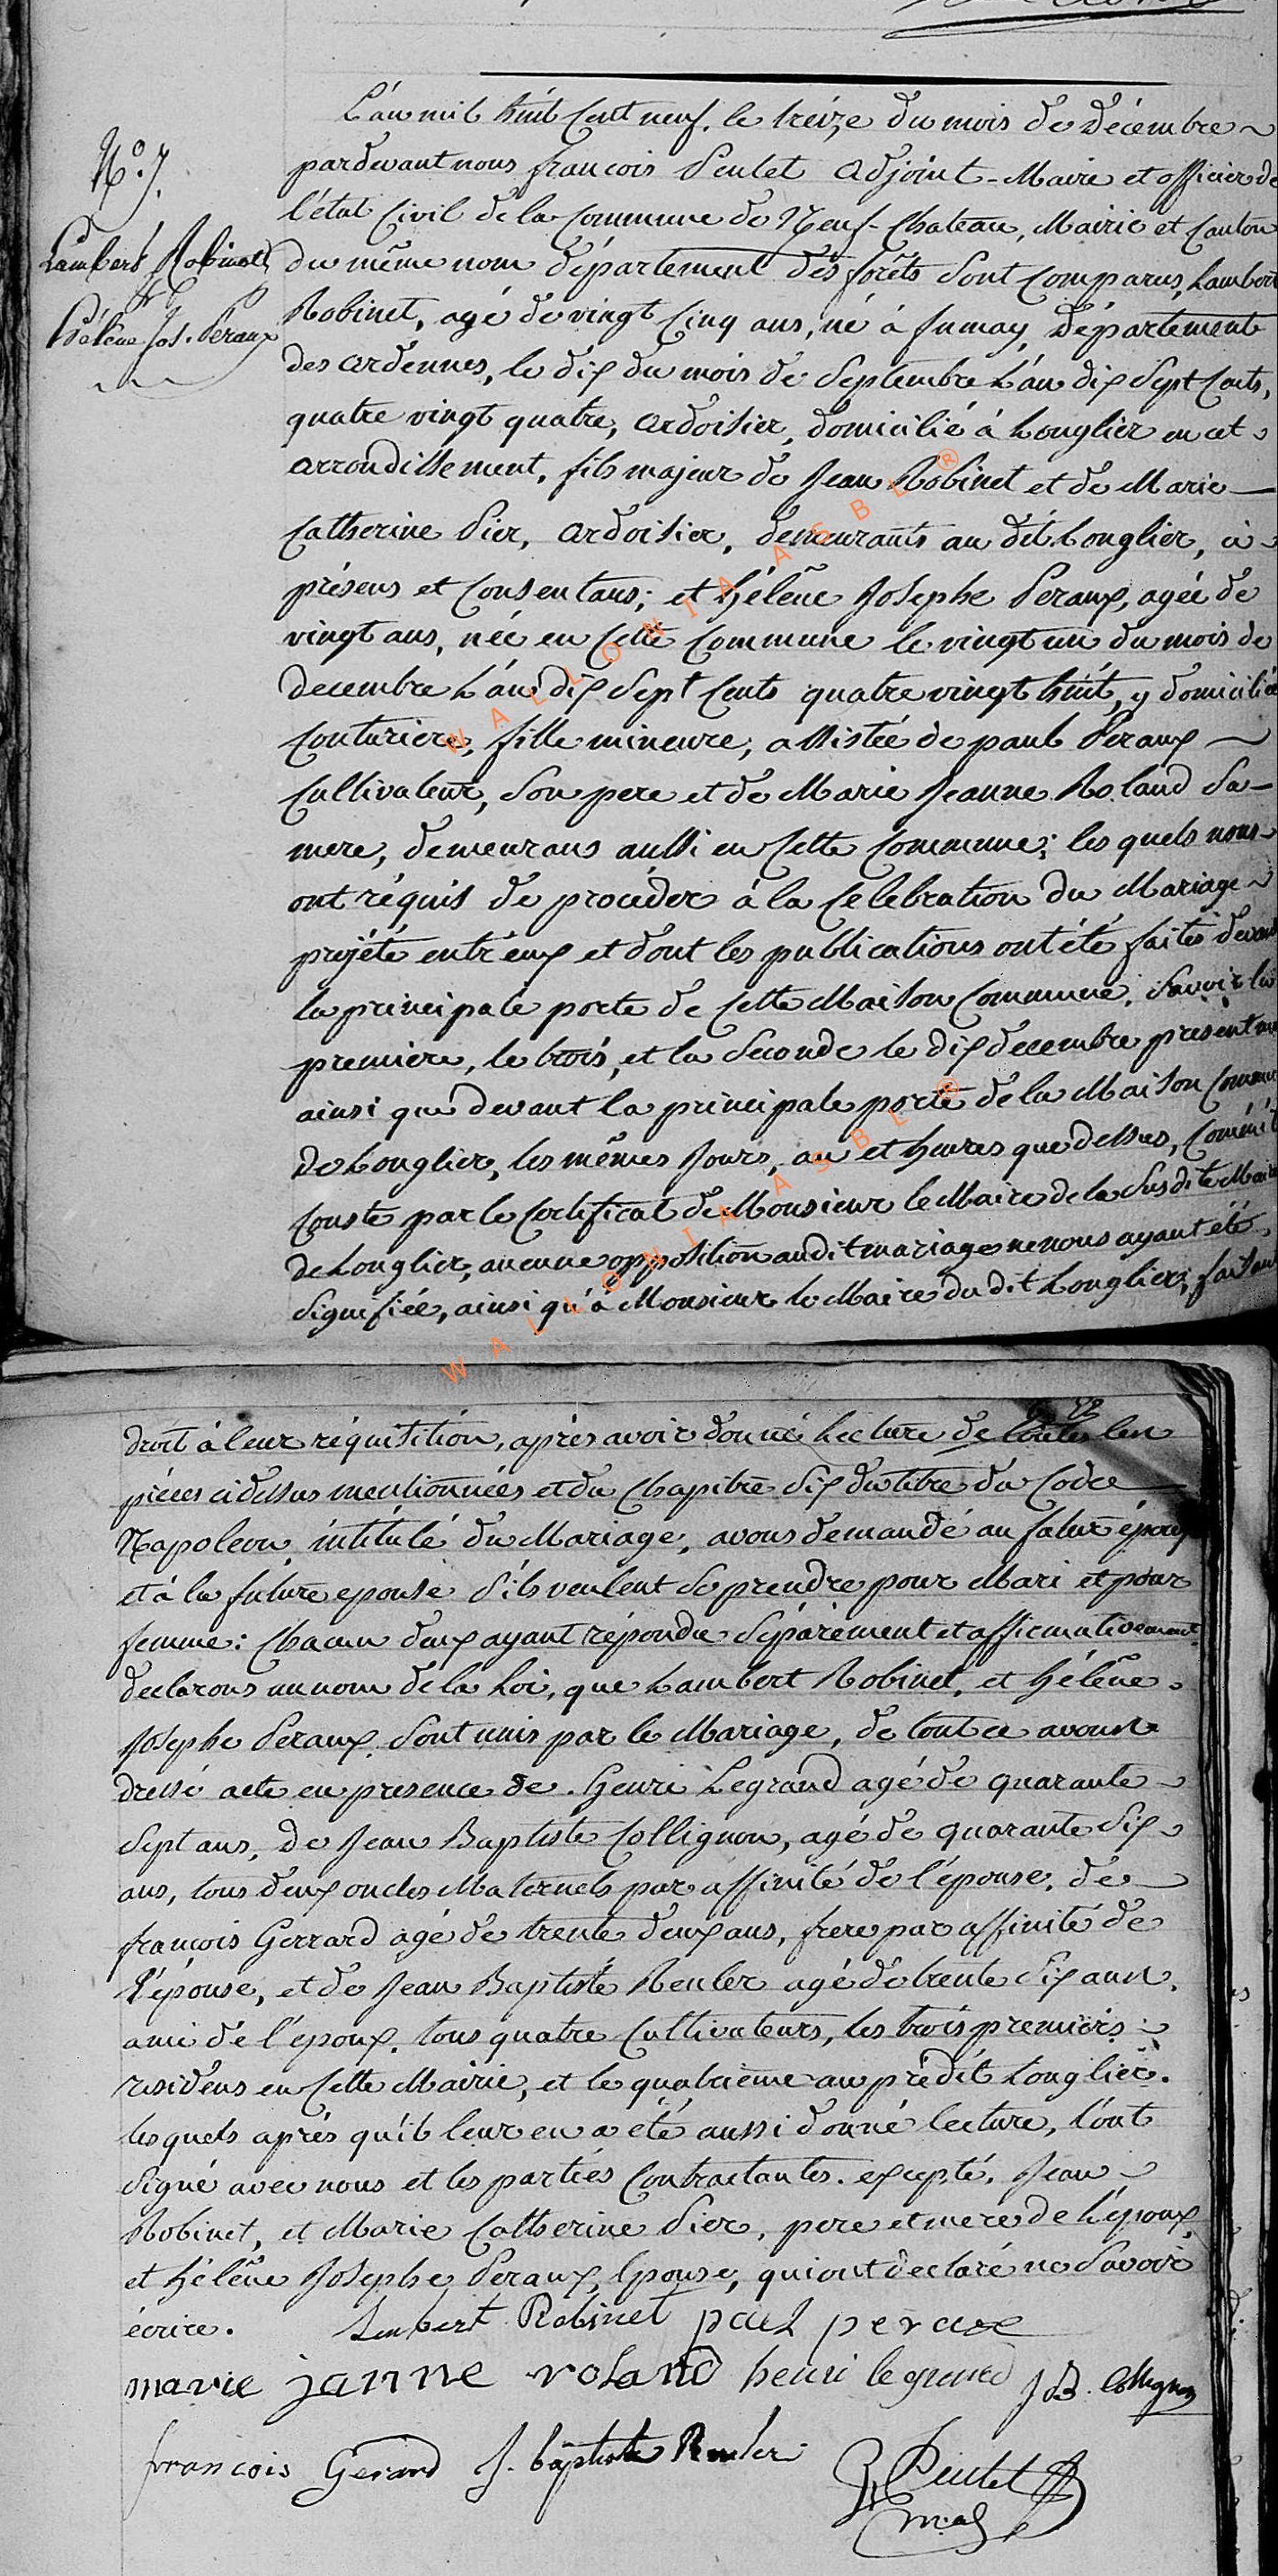 L'án mil huit Cent neuf. le tréize du mois de Décembre ~
N.º 7. pardevant nous françois Peulet Adjoint-Maire et officier de
l'état Civil de la Commune de Neuf-Chateau, Mairie et Canton
Lambert Robinet
& 
Hélène Jos. Peraux
du même nom département des forêts sont comparus, Lambert
Robinet, agé de vingt cinq ans, né à fumay, Département
des ardennes, le dix du mois de Septembre L'an dix Sept Cents,
quatre vingt quatre, ardoisier, domicilié à Longlier en cet
arrondissement, fils majeur de Jean Robinet et de Marie —
Catherine Pier, Ardoisier, demeurants au dit Longlier, ci
présens et Consentans; et Hélêne Josephe Peraux, agée de
vingt ans, née en Cette Commune le vingt un du mois de
decembre L'an dix Sept Cents quatre vingt huit, y domiciliée
Couturiere, fille mineure, assistée de paul Peraux ~
Cultivateur, Son pere et de Marie Jeanne Roland Sa -
mere, demeurans aussi en Cette Commune; les quels nous
ont réquis de procéder à la Celebration du Mariage ~
projété entr'eux et dont les publications ont été faites devant
la principale porte de Cette Maison Commune. Savoir la
premiere, le trois, et la Seconde le dix decembre present mois
ainsi que devant la principale porte de la Maison Commune
de Longlier, les mêmes Jours, an et heures que dessus, Comme il
Conste par le Certificat de Monsieur le Maire de la Susdite Mairie
de Longlier, aucune opposition audit mariage ne nous ayant été
Signifiée, ainsi qu'à Monsieur le Maire du dit Longlier; faisant
droit à leur réquisition, aprés avoir donné Lecture de toutes les
piéces cidessus mentionnées et du Chapitre Six du titre du Code
Napoleon, intitulé du Mariage, avons demandé au futur époux
et à la future epouse S'ils veulent Se prendre pour Mari et pour
femme: Chacun d'eux ayant répondu Séparément et affirmativement
declarons au nom de la Loi, que Lambert Robinet, et Hélêne
Josephe Peraux Sont unis par le Mariage, de tout ce avons
dressé acte en presence de Henri Legrand agé de quarante
Sept ans, de Jean Baptiste Collignon, agé de quarante Six
ans, tous deux oncles Maternels par affinité de l'épouse, de
françois Gerrard agé de trente deux ans, frere par affinité de
l'épouse, et de Jean Baptiste Reuler agé de trente Six ans.
ami de l'epoux, tous quatre Cultivateurs, les trois premiers
residens en Cette Mairie, et le quatriême au prédit Longlier.
les quels aprés qu'il leur en a été aussi donné lecture, l'ont
Signé avec nous et les parties Contractantes. excepté. Jean
Robinet, et Marie Catherine Pier, pere et mere de L'époux,
et Hélêne Josephe Peraux, Epouse, qui ont declaré ne Savoir
écrire. Lambert Robinet paul peraux
marie janne roland henri legrand JB. Collignon
francois Gerard J. baptiste Reuler Peulet
WALLONIA ASBL ®
WALLONIA ASBL ®